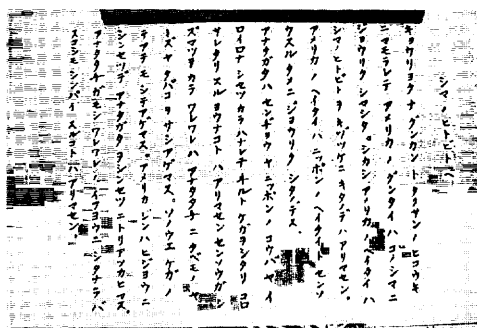 シマノヒトビトヘ
キョウリョクナ グンカン ト タクサンノ ヒコウキ
ニマモラレテ アメリカノ グンタイハ コノシマニ
ジョウリク シマシタ。シカシ アメリカノ ヘイタイハ
シマノヒトビトヲ キヅツケニ キタノデハ アリマセン。
アメリカノ ヘイタイハ ニッポンノ ヘイタイト センソ
ウスル タメニ ジョウリク シタノデス。
アナタガタハ センジョウ ヤ ニッポンノ コウバ ヤ イ
ロイロナ シセツカラ ハナレテ ヰルト ケガヲ シタリ コロ
サレタリスル ヨウナコトハ アリマセン センソウガ
スマツタ カラ ワレワレハ アナタタチニ タベモノ ヤ
ミズヤ タバコヲ サシアゲマス。ソノウエ ケガノ
テアテモ シテアゲマス。アメリカ ジンハ ヒジョウニ
シンセツデ アナタガタヲ シンセツニ トリアツカヒマス。
アナタタチガ モシ ワレワレノ イフヨウニ シタナラバ
スコシモ シンパイ スルコトハ アリマセン。